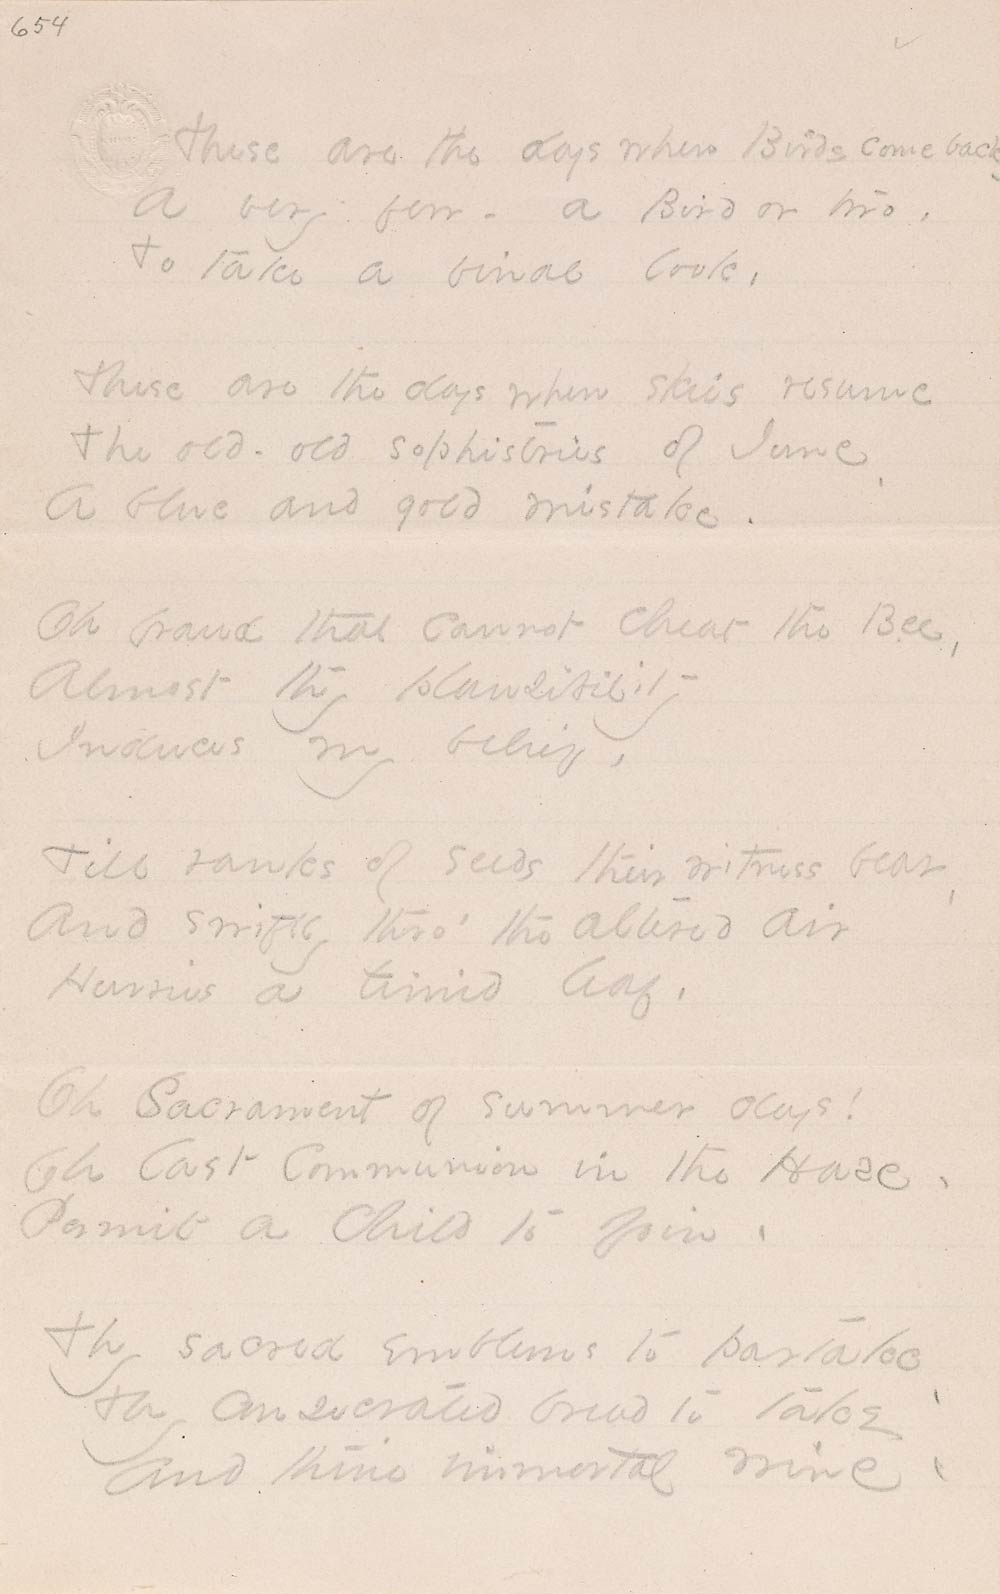 654
These are the days when Birds come back,
A very few - a Bird or two,
To take a final look.
These are the days when skies resume
The old - old sophistries of June,
A blue and gold mistake.
Oh fraud that cannot cheat the Bee,
Almost thy plausibility
Induces my belief,
Till ranks of seeds their witness bear,
And swiftly thro' the altered air
Hurries a timid leaf.
Oh Sacrament of summer days!
Oh Last Communion in the Haze,
Permit a Child to join,
Thy sacred emblems to partake,
Thy consecrated bread to take
And thine immortal wine!